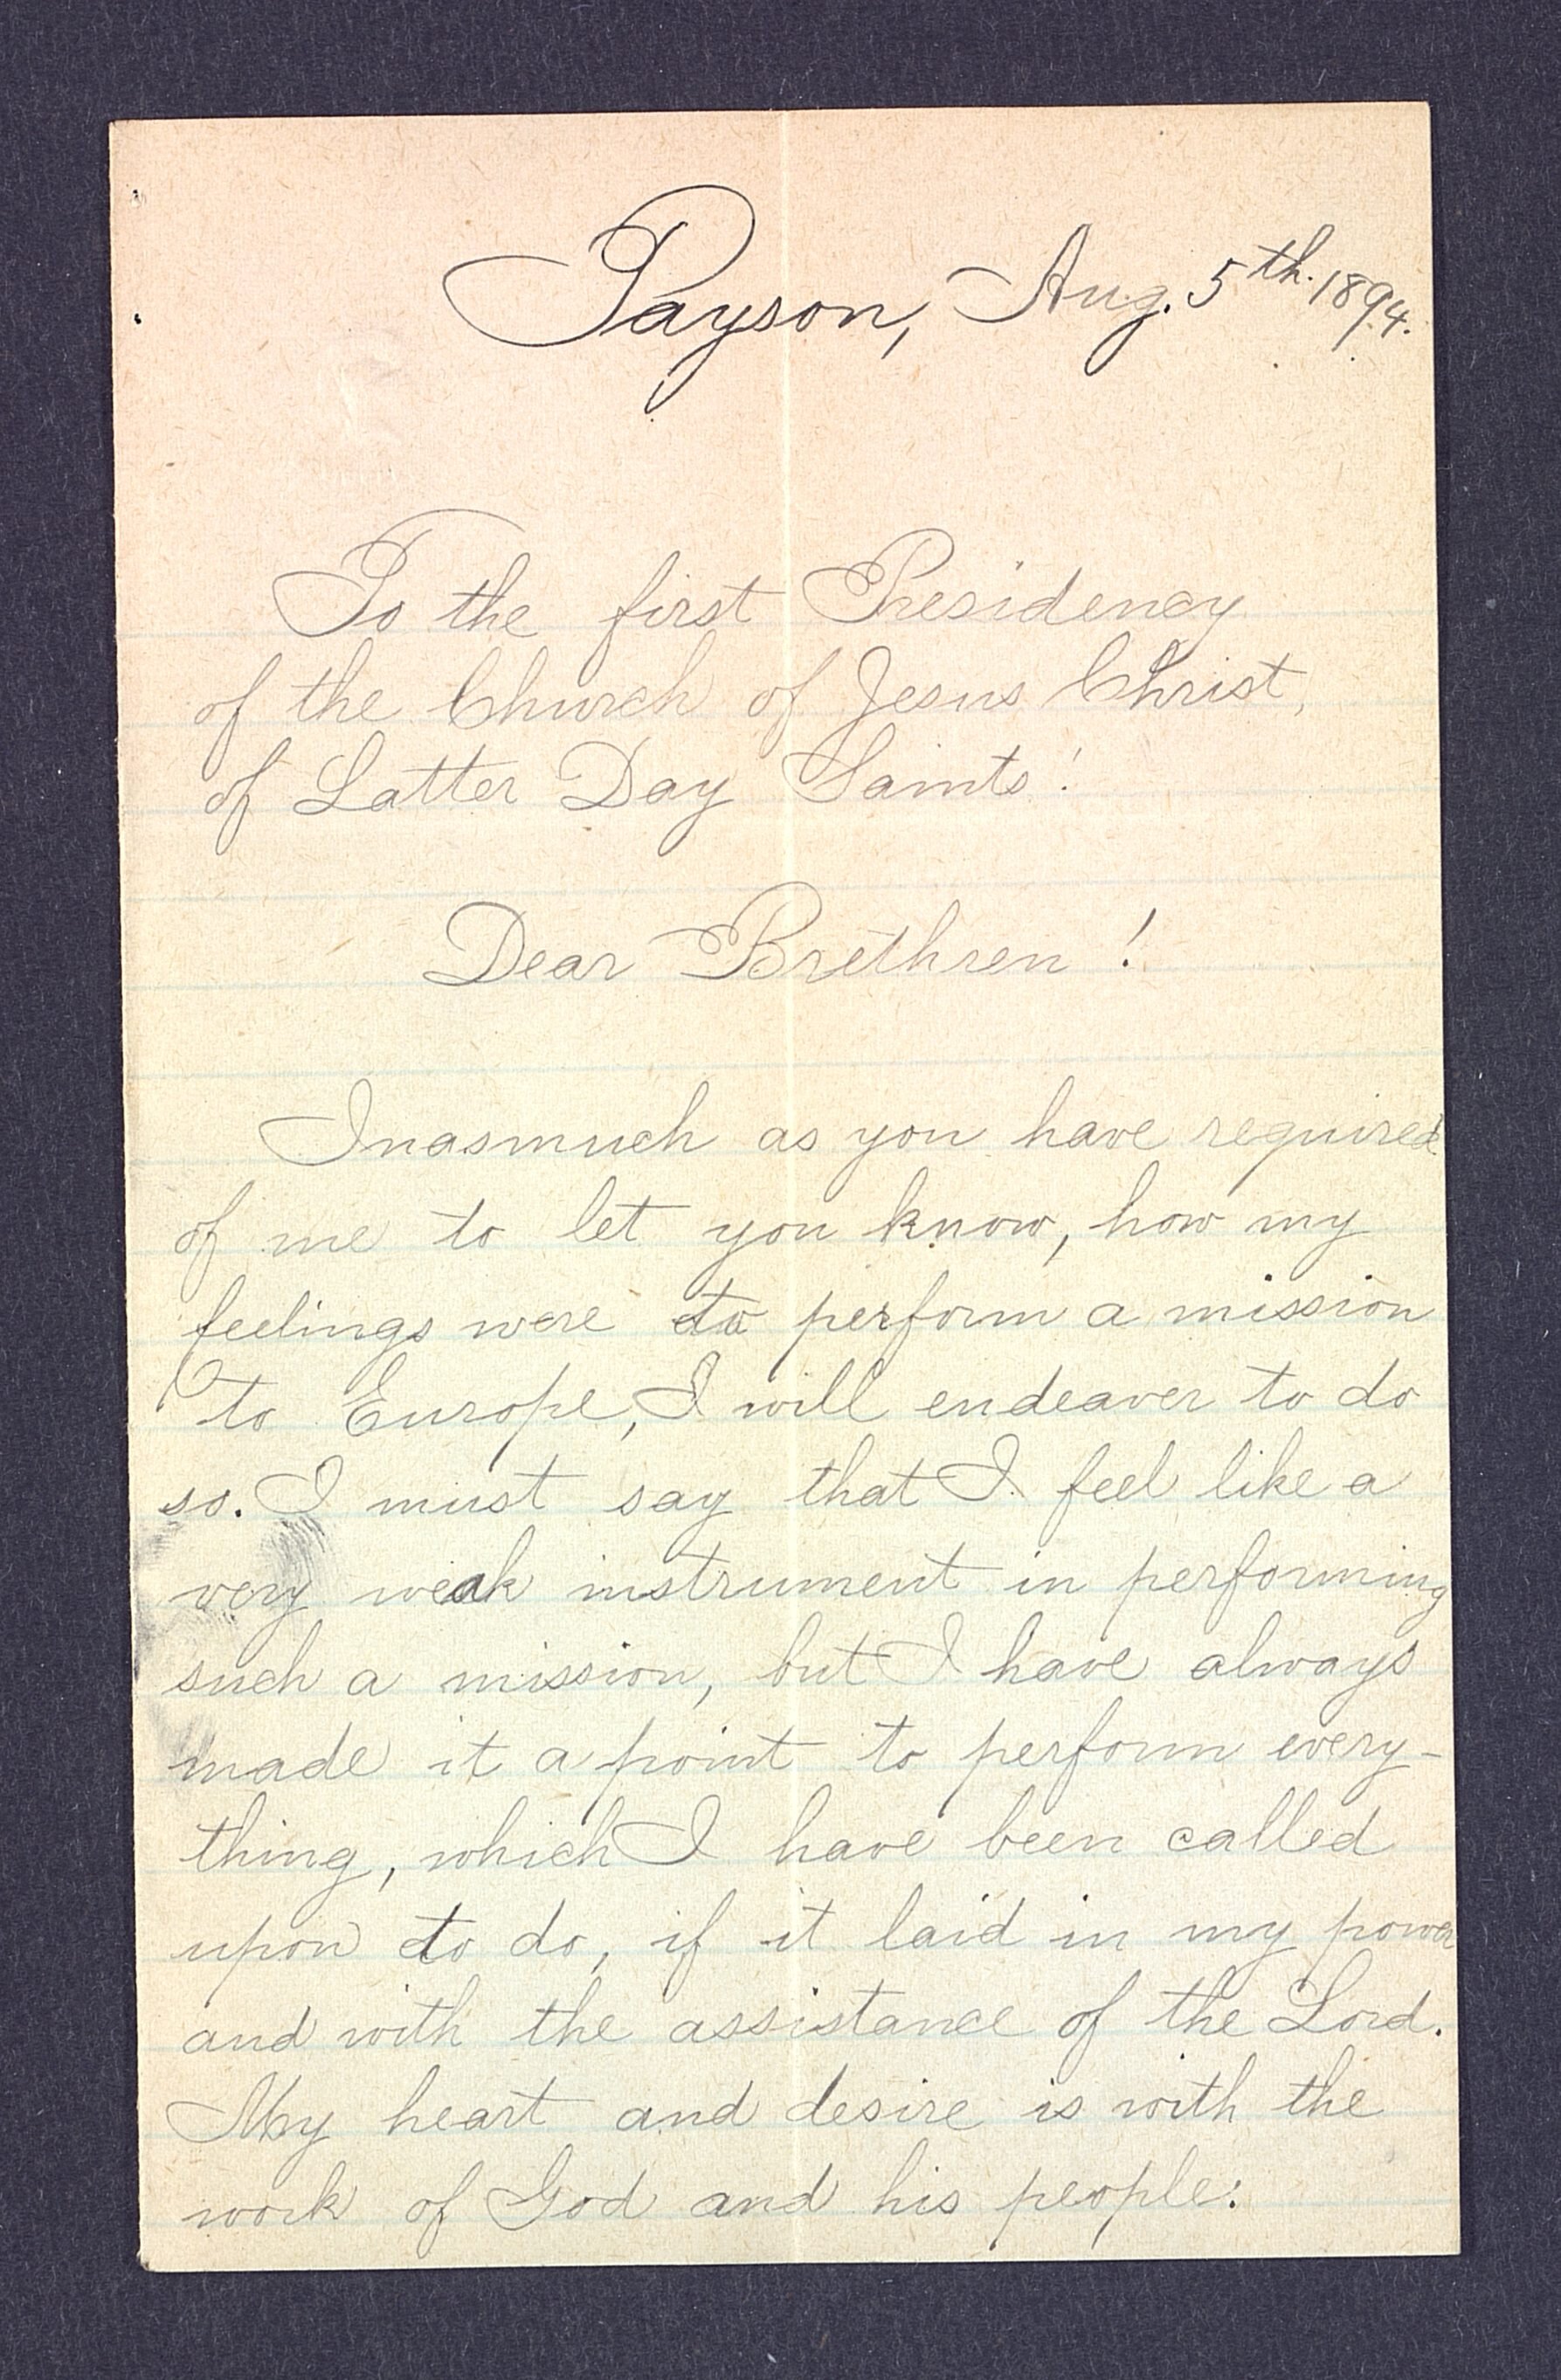 Payson, Aug. 5th. 1894.
To the first Presidency
of the Church of Jesus Christ,
of Latter Day Saints!
Dear Brethren!
Inasmuch as you have required
of me to let you know, how my
feelings were to perform a mission
to Europe, I will endeaver to do
so. I must say that I feel like a
very weak instrument in performing
such a mission, but I have always
made it a point to perform every-
thing, which I have been called
upon to do, if it laid in my power
and with the assistance of the Lord.
My heart and desire is with the
work of God and his people.